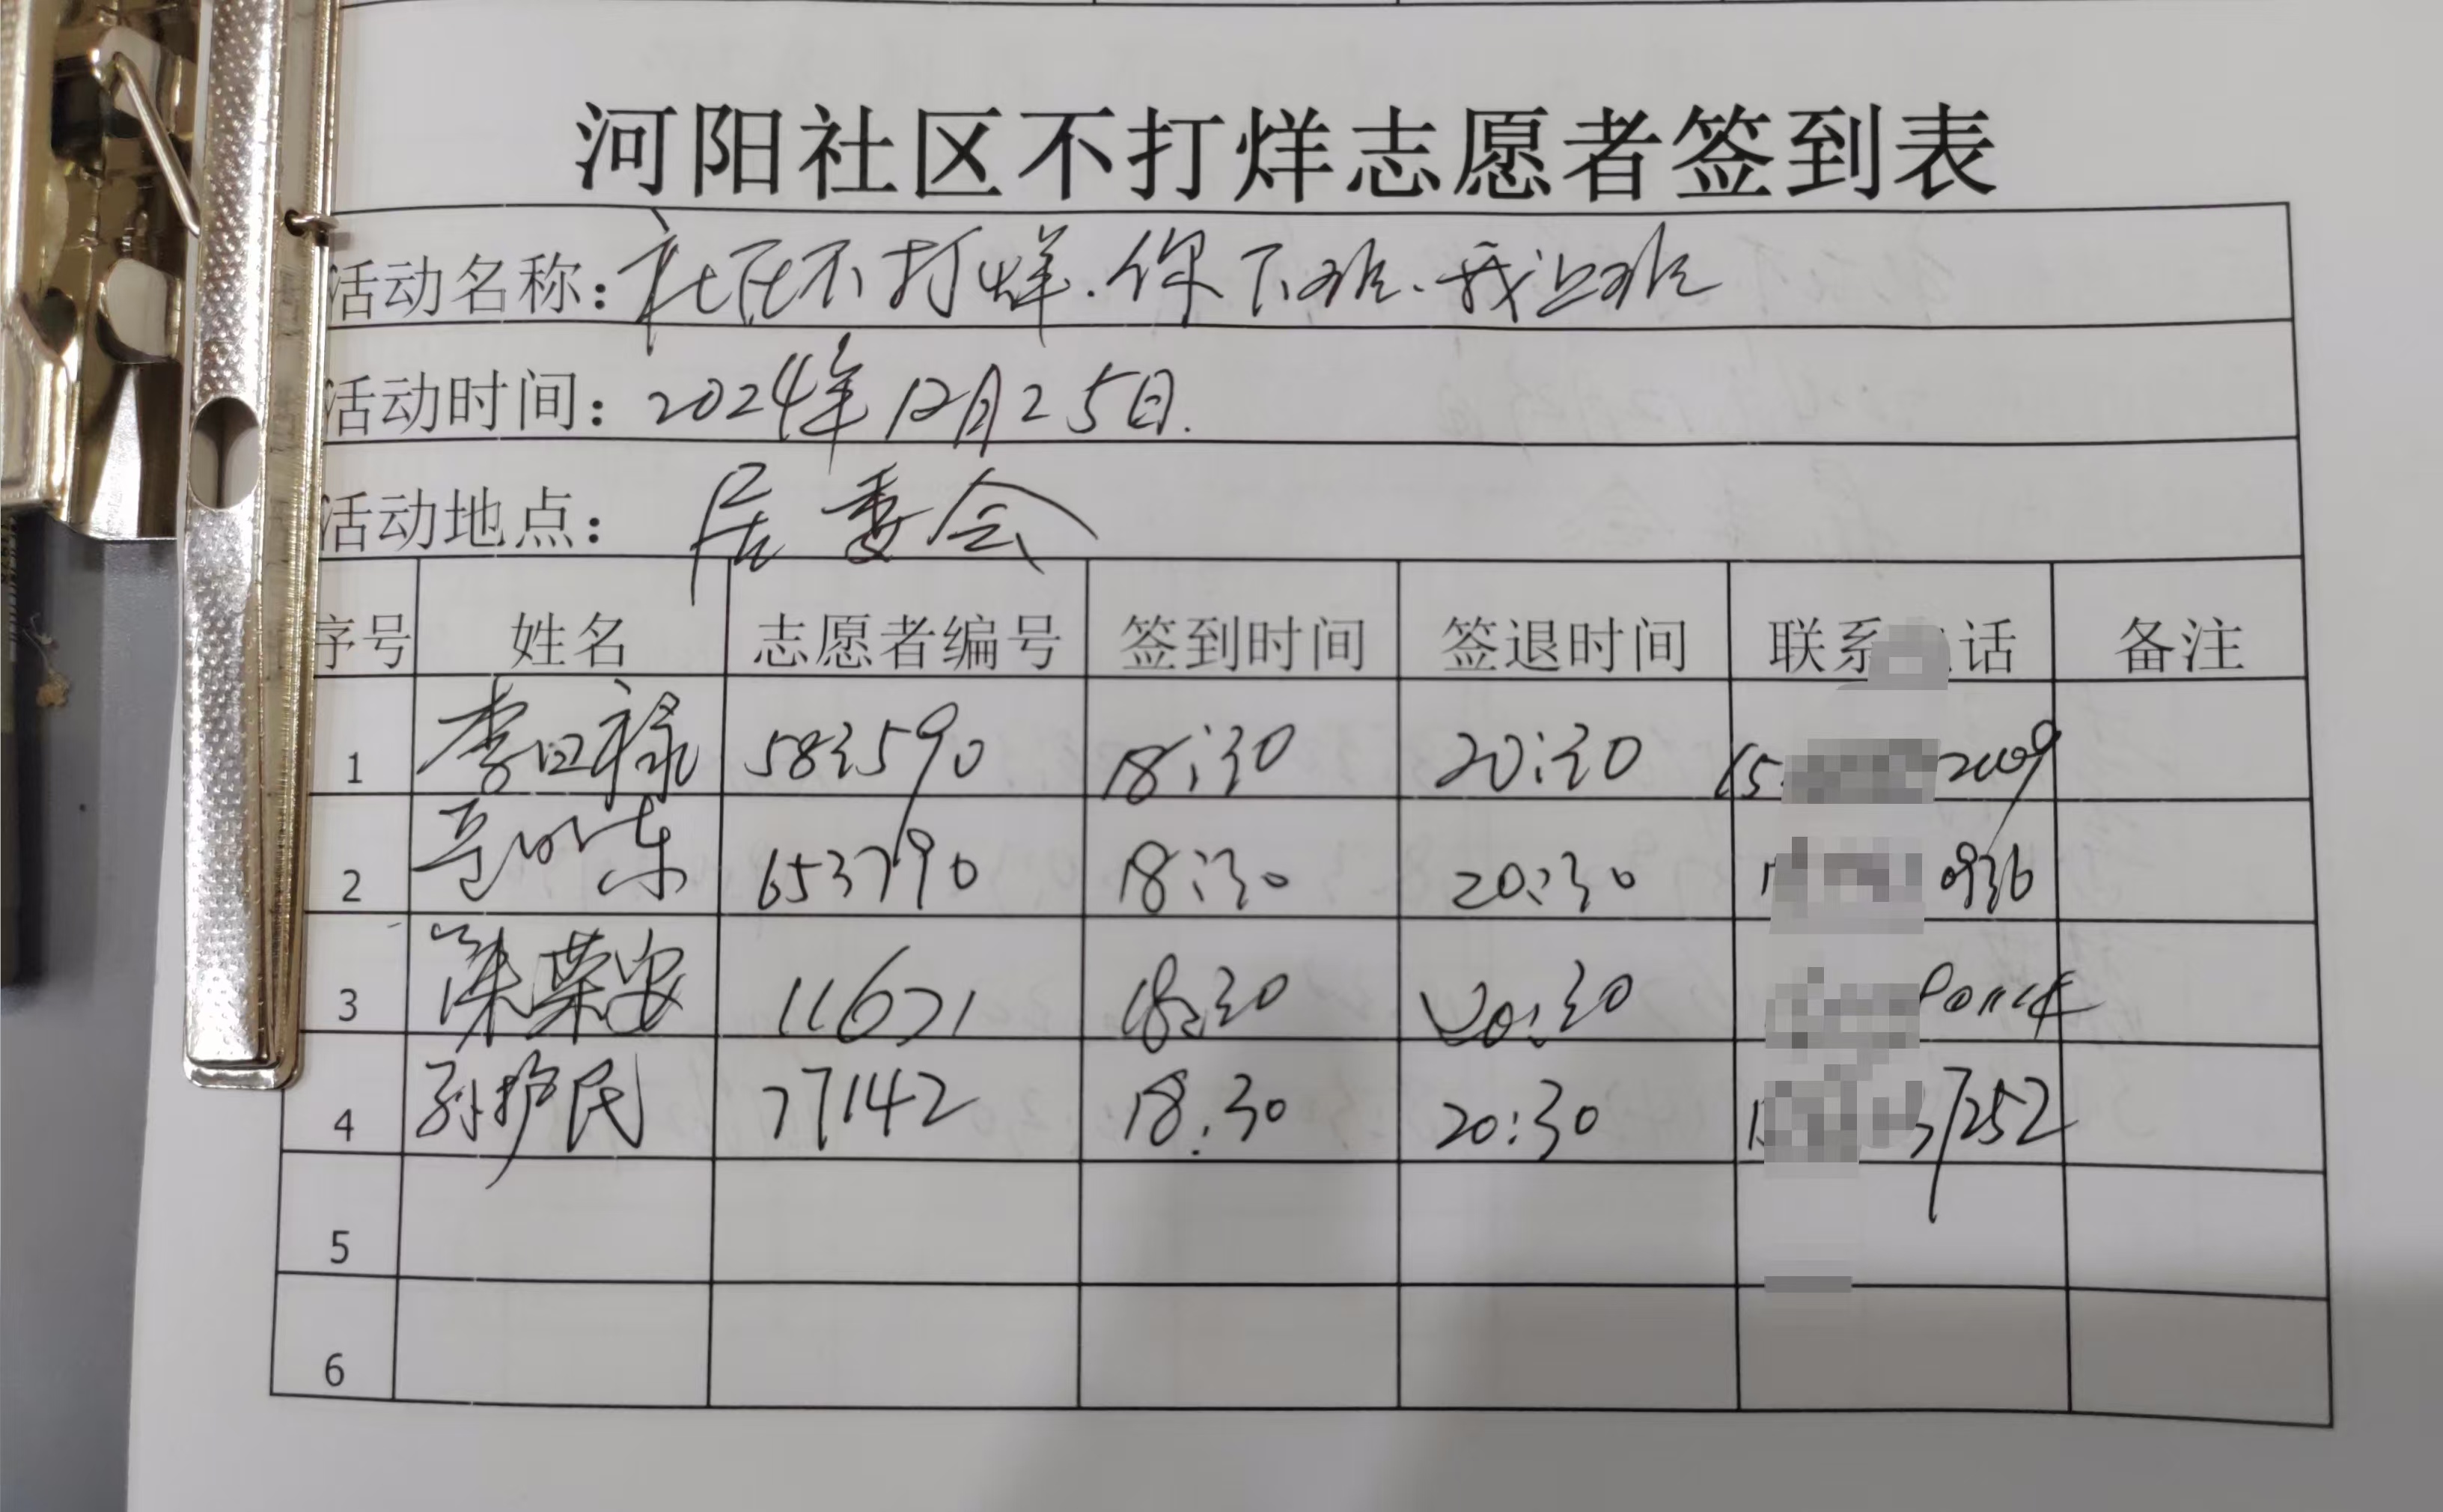 河阳社区不打烊志愿者签到表
活动名称：社区不打烊.你下班.我上班
活动时间：2024年12月25日.
活动地点： 居委会
序号 姓名 志愿者编号 签到时间 签退时间 联系 话 备注
1 李日禄 583590 18:30 20:30 15 2009
2 东 653790 18:30 20:30 1 0936
3 荣安 11671 18:30 20:30
4 孙护民 77142 18:30 20:30 1 7252
5
6